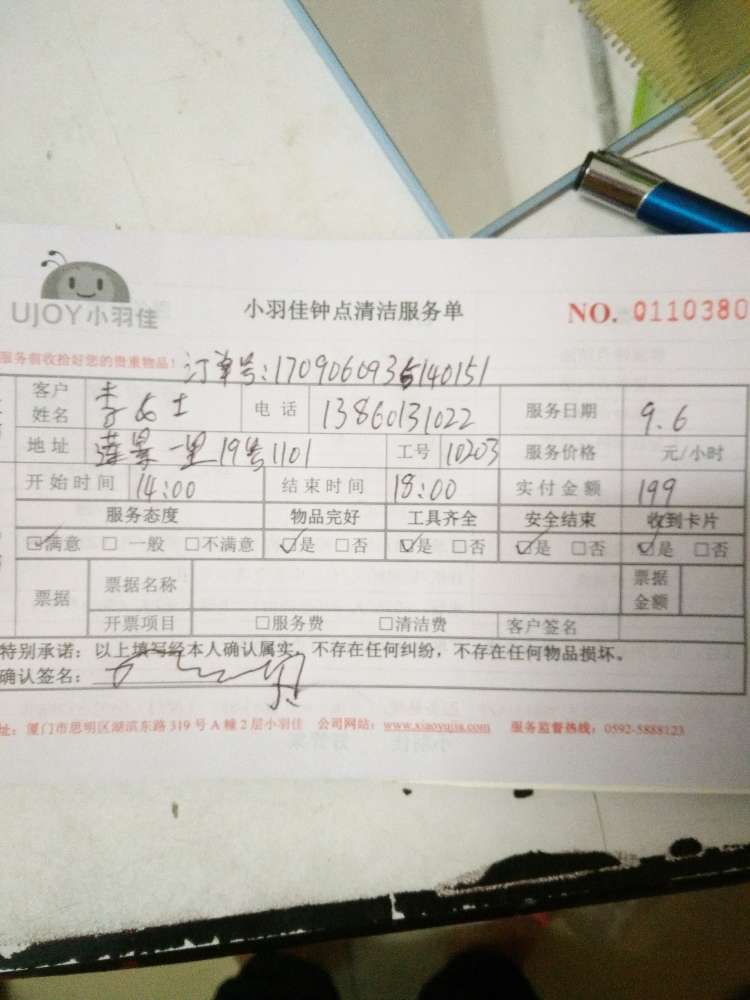 UJOY小羽佳 小羽佳钟点清洁服务单 NO. 0110380
服务前收拾好您的贵重物品! 订单号:1709060935140151
客户姓名 李女士 电话 13860131022 服务日期 9.6
地址 莲景一里19号1101 工号 10203 服务价格 元/小时
开始时间 14:00 结束时间 18:00 实付金额 199
服务态度 物品完好 工具齐全 安全结束 收到卡片
☑满意 □一般 □不满意 ☑是 □否 ☑是 □否 ☑是 □否 ☑是 □否
票据 票据名称 票据金额
开票项目 □服务费 □清洁费 客户签名
特别承诺:以上填写经本人确认属实,不存在任何纠纷,不存在任何物品损坏。
确认签名:
址:厦门市思明区湖滨东路319号A幢2层小羽佳 公司网站:www.xiaoyujia.com 服务监督热线:0592-5888123